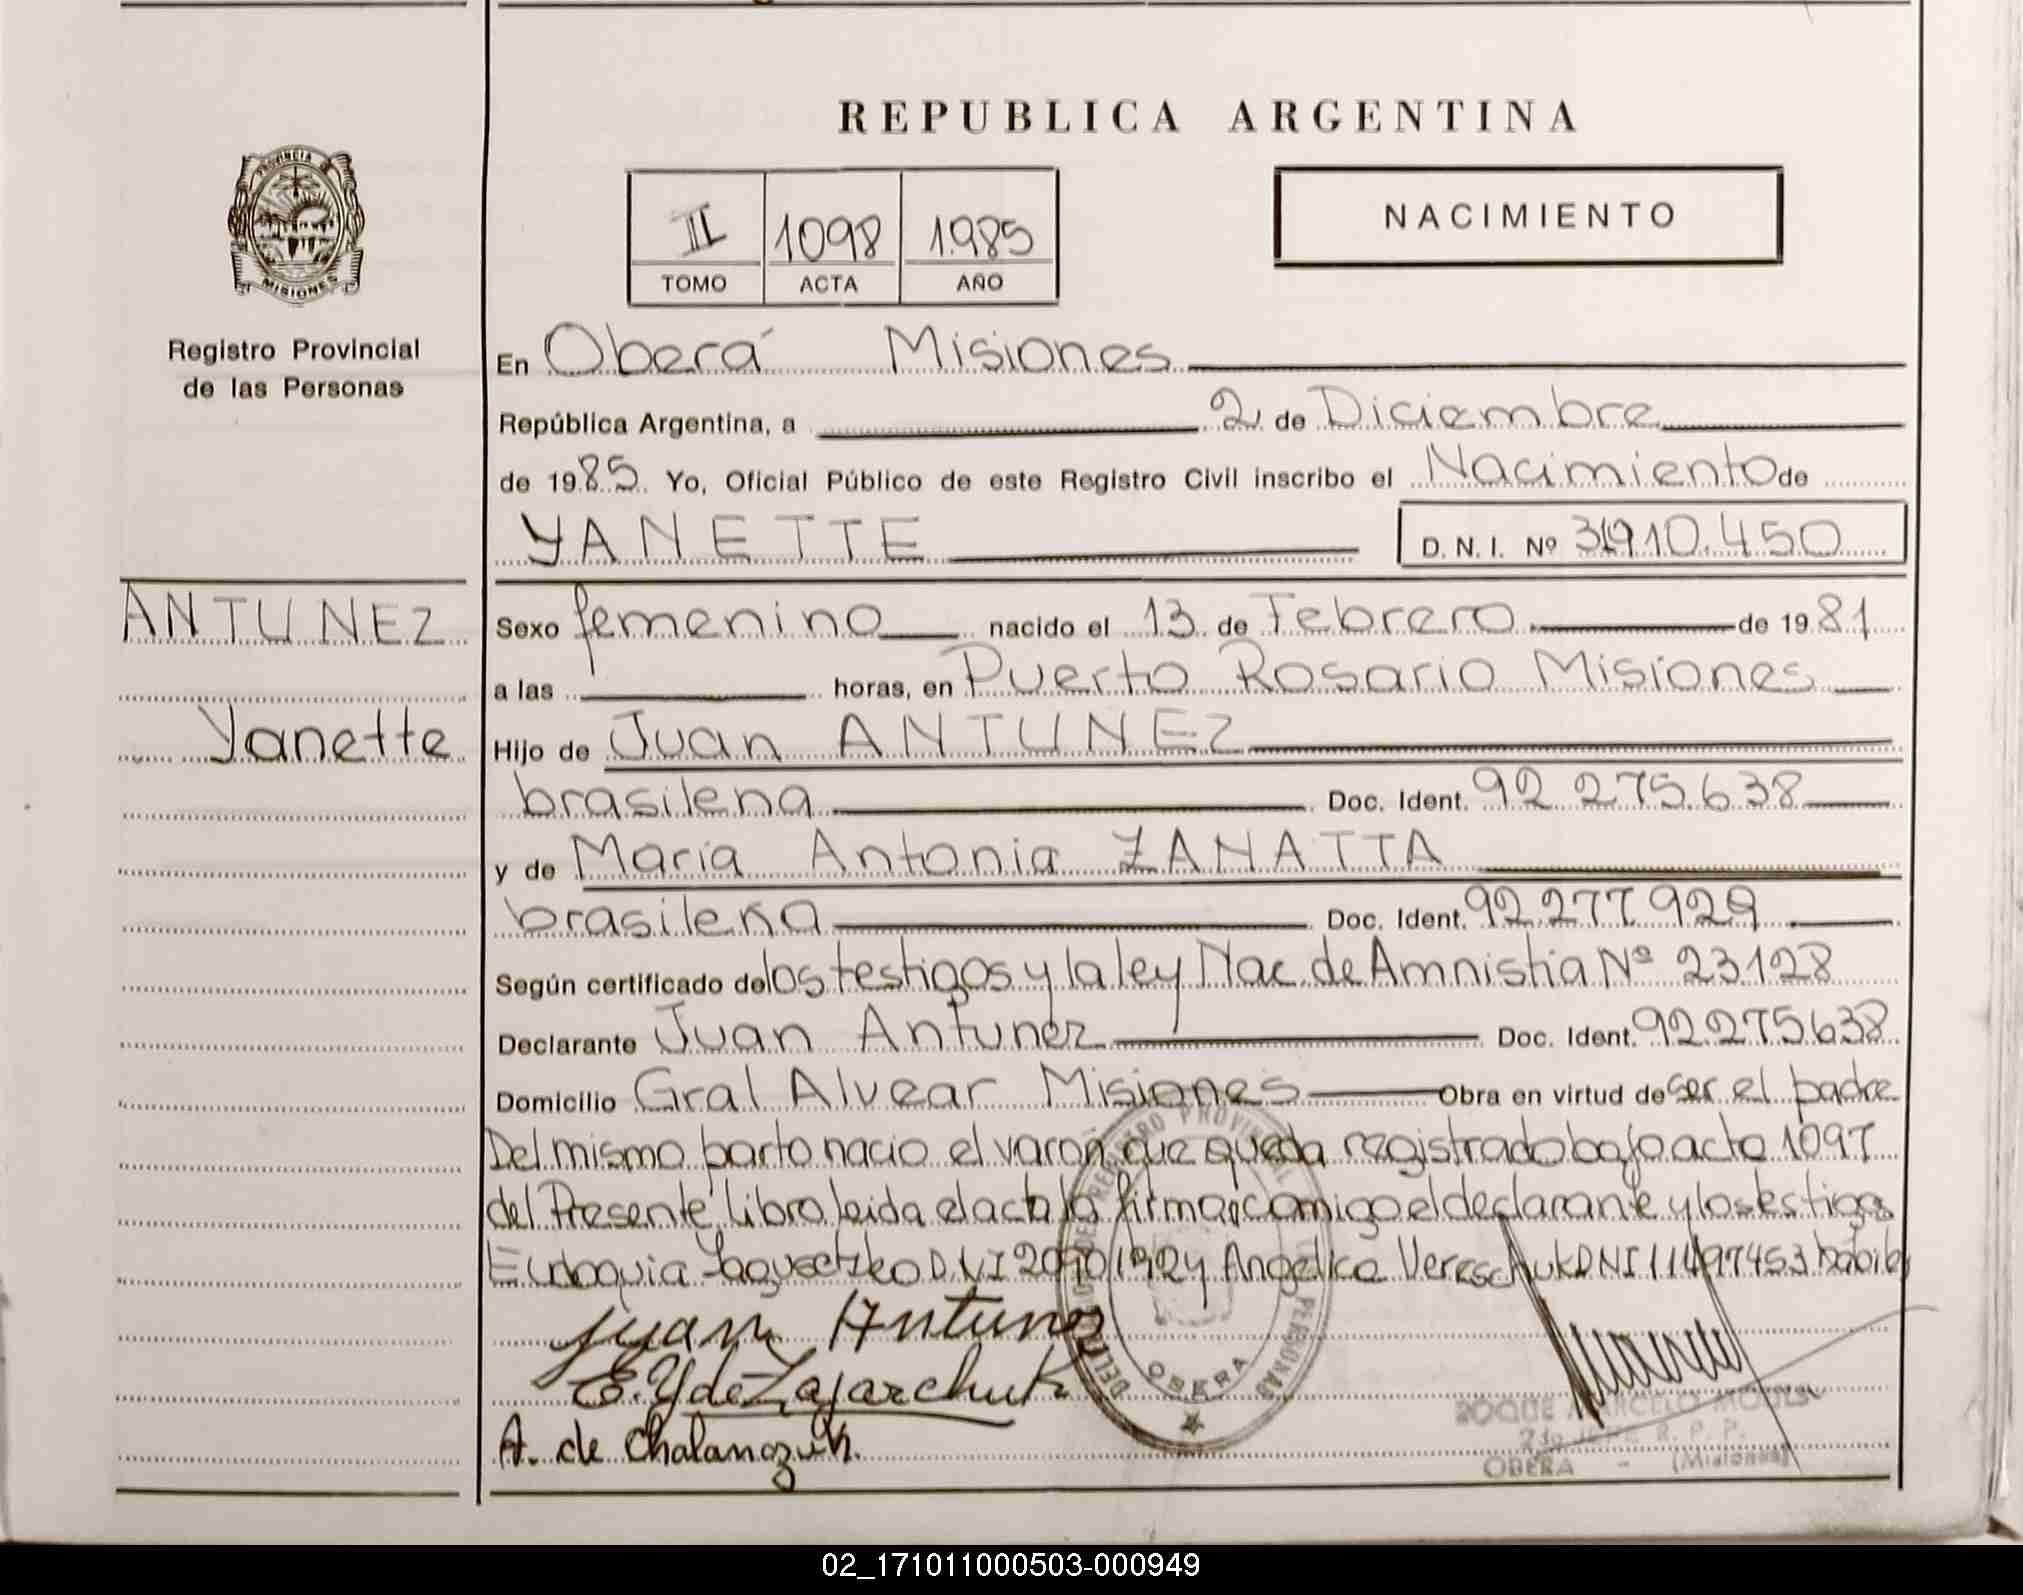 REPUBLICA ARGENTINA
PROVINCIA
MISIONES
Registro Provincial
de las Personas
II 1098 1985
TOMO ACTA AÑO
NACIMIENTO
En Oberá Misiones
República Argentina, a 2 de Diciembre
de 1985. Yo, Oficial Público de este Registro Civil inscribo el Nacimiento de
YANETTE
D. N. I. Nº 31910.450
ANTUNEZ
Yanette
Sexo femenino nacido el 13 de Febrero de 1981
a las horas, en Puerto Rosario Misiones
Hijo de Juan ANTUNEZ
brasilena Doc. Ident. 92 275.638
y de Maria Antonia ZANATTA
brasilena Doc. Ident. 92 277 929
Según certificado de los testigos y la ley Nac. de Amnistia Nº 23128
Declarante Juan Antunez Doc. Ident. 92.275.638
Domicilio Gral Alvear Misiones Obra en virtud de ser el padre
Del mismo parto nacio el varon que queda registrado bajo acta 1097
del Presente libro leida el acta la firman comigo el declarante y los testigos
DNI Angelica DNI 11497453
Juan Antunez
E. Y de Zajarchuk
A. de Chalanczuk.
REGISTRO PROVINCIAL PERSONAS
OBERA
ROQUE MARCELO
JEFE R. P. P.
OBERA - (Misiones)
02_171011000503-000949